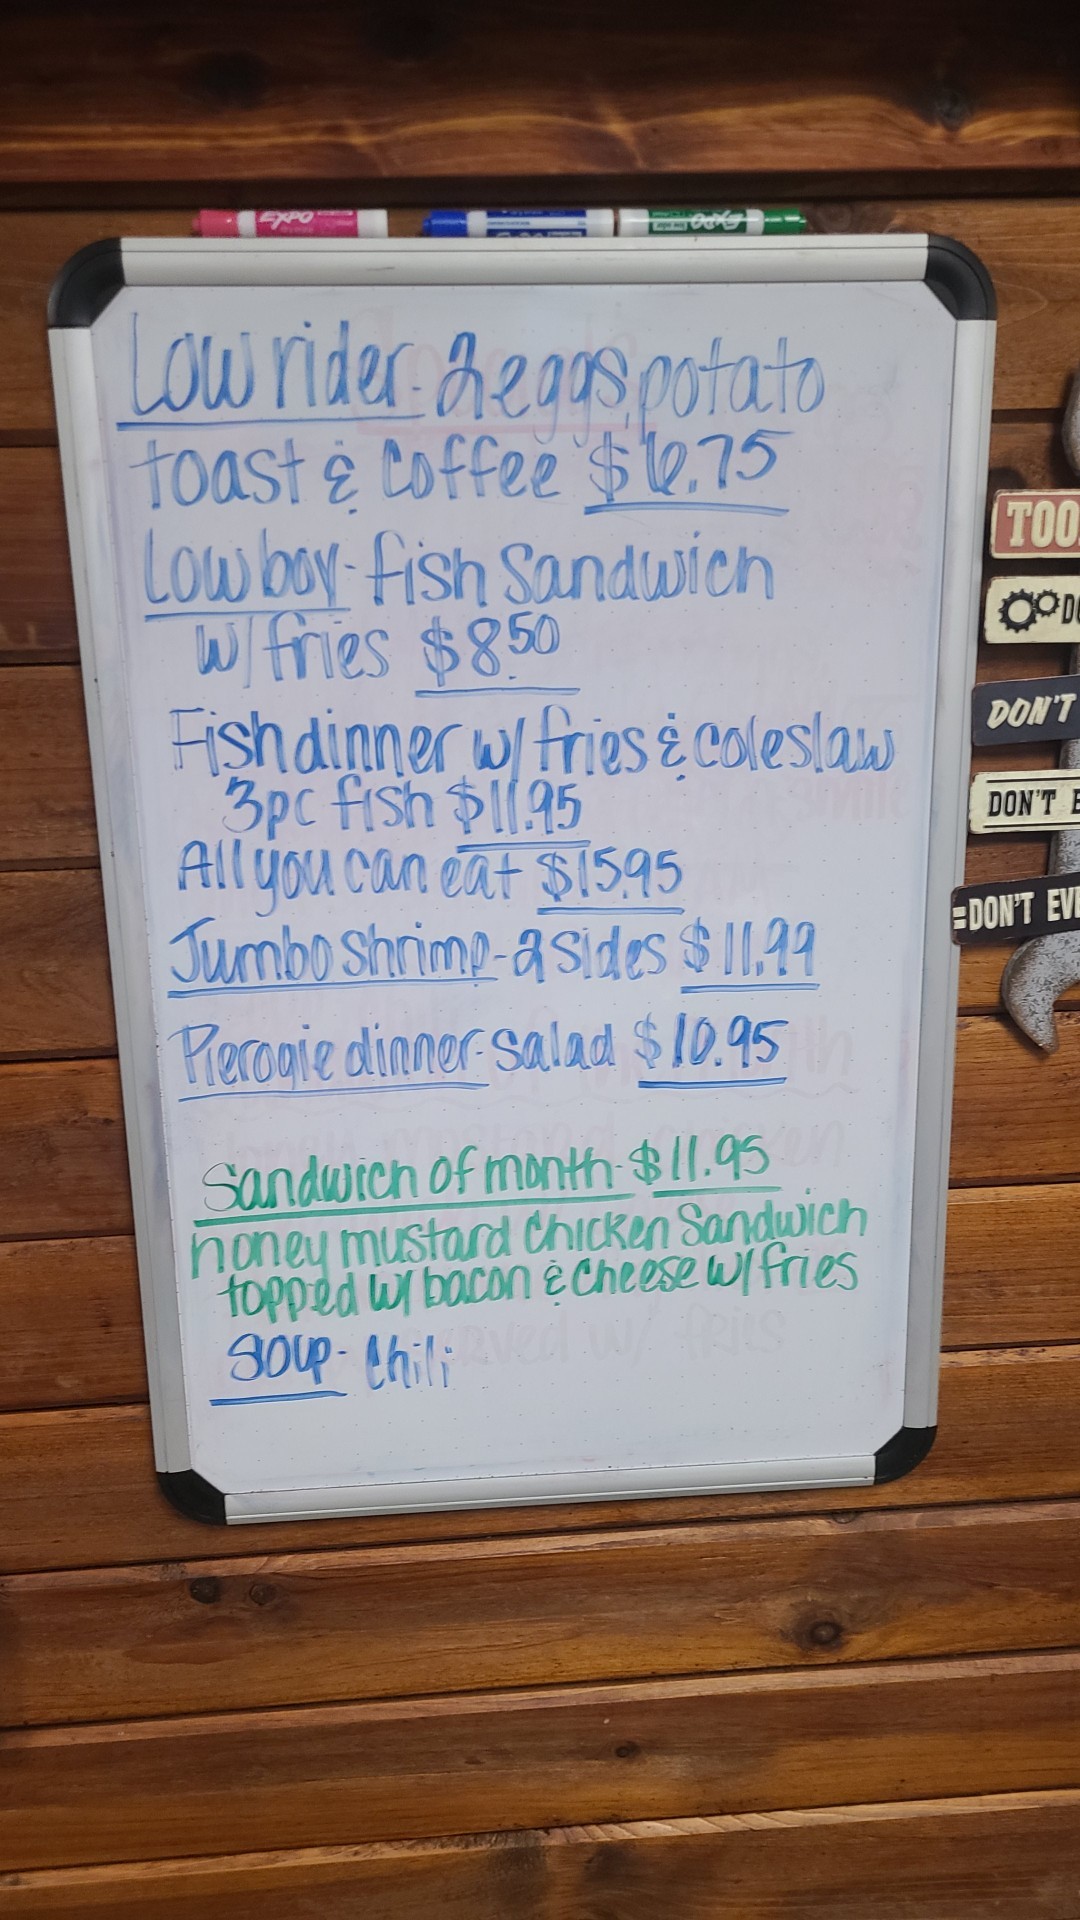 EXPO
EXPO
Low rider - 2 eggs, potato
toast & coffee $6.75
Low boy - fish Sandwich
w/ fries $8.50
Fish dinner w/ fries & coleslaw
3pc fish $11.95
All you can eat $15.95
Jumbo Shrimp - 2 sides $11.99
Pierogie dinner - salad $10.95
Sandwich of month - $11.95
honey mustard Chicken Sandwich
topped w/ bacon & Cheese w/ fries
Soup - Chili
TOO
DO
DON'T
DON'T E
=DON'T EVE